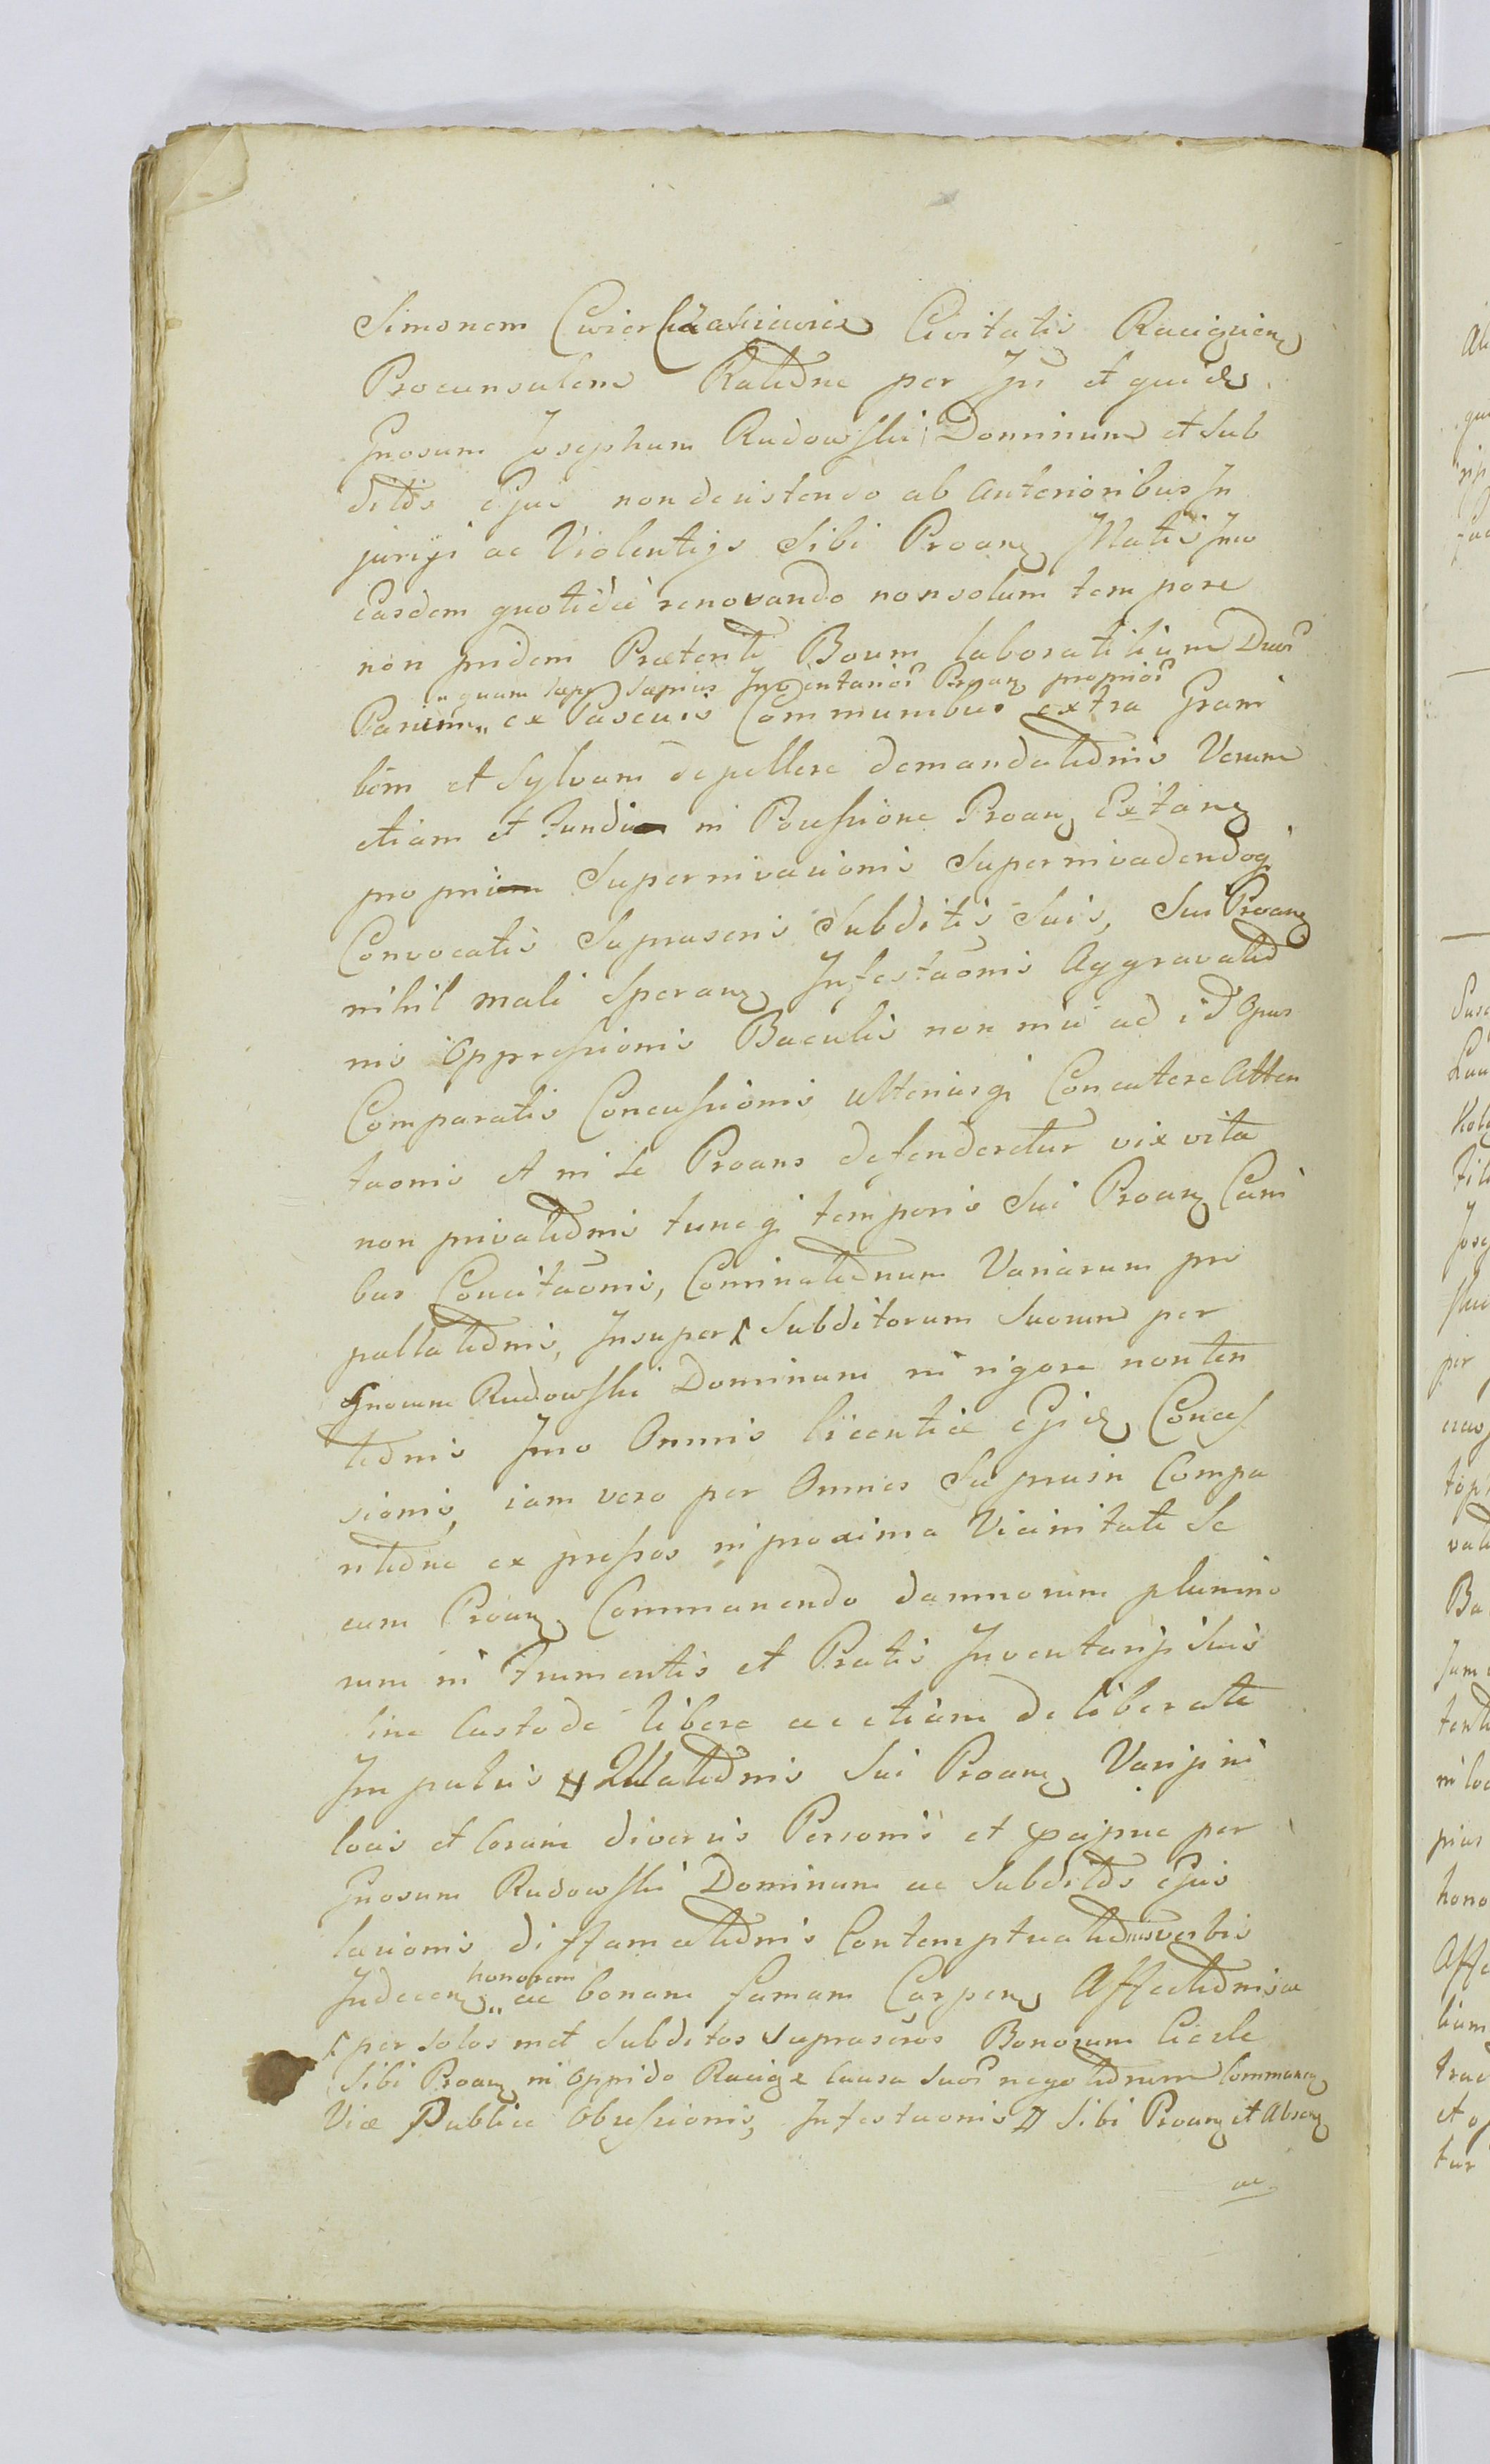 Simonem Cwierczaskiewicz Civitatis Raciązien
Proconsulem Ratione per Ipn et quidem
Gnosum Josephum Rudowski Dominum et Sub
ditos Ejus non desistendo ab anterioribus In
jurijs ac Violentijs Sibi Proan Illatis Imo
Easdem quotidie renovando non solum tempore
non pridem Praeterito Boum laboratilium Duor
"quam sape sapius Inventarior Proan proprior
Parium" ex Pascuis Communibus extra Grani
bem et Sylvam depellere demandationis Verum
etiam et Fundi in Possessione Proan Extan
proprii Supernivasionis Supernivadendoq
Convocatis Suprascris Subditis Suis, Sui Proan
nihil mali Speran Infestaonis Aggravatio
nis Oppressionis Baculis non nisi ad id Opus
Comparatis Concussionis ulteriusq Concutere Atten
taonis et ni se Proans defenderetur vix vita
non privationis tuncq temporis Sui Proan Cani
bus Concitaonis, Cominationum Variarum pro
pallationis, Insuper Subditorum Suorum per
Gnosum Rudowski Dominum in rigore non ten
tionis Imo Omnis licentiae Ejsd Conces
sionis, iam vero per Omnes Suprasin Compa
ritione expressos in proxima Vicinitate Se
cum Proan Commanendo damnorum plurimo
rum in Frumentis et Pratis Inventarijs Suis
Sine Custode libere ac etiam deliberate
Impulsis Illationis Sui Proan Varijs in
locis et Coram diversis Personis et praecipue per
Gnosum Rudowski Dominum ac Subditos Ejus
laesionis diffamationis Contemptuationis verbis
honorem
Indecen " ac bonam famam Carpen Affectionis ac
per solos met Subditos Suprascros Bonorum Ciecle
Sibi Proan in Oppido Raciąż causa Suor negotiorum Commanen
Viae Publicae Obsessionis, Infestaonis Sibi Proan et Absen
ac